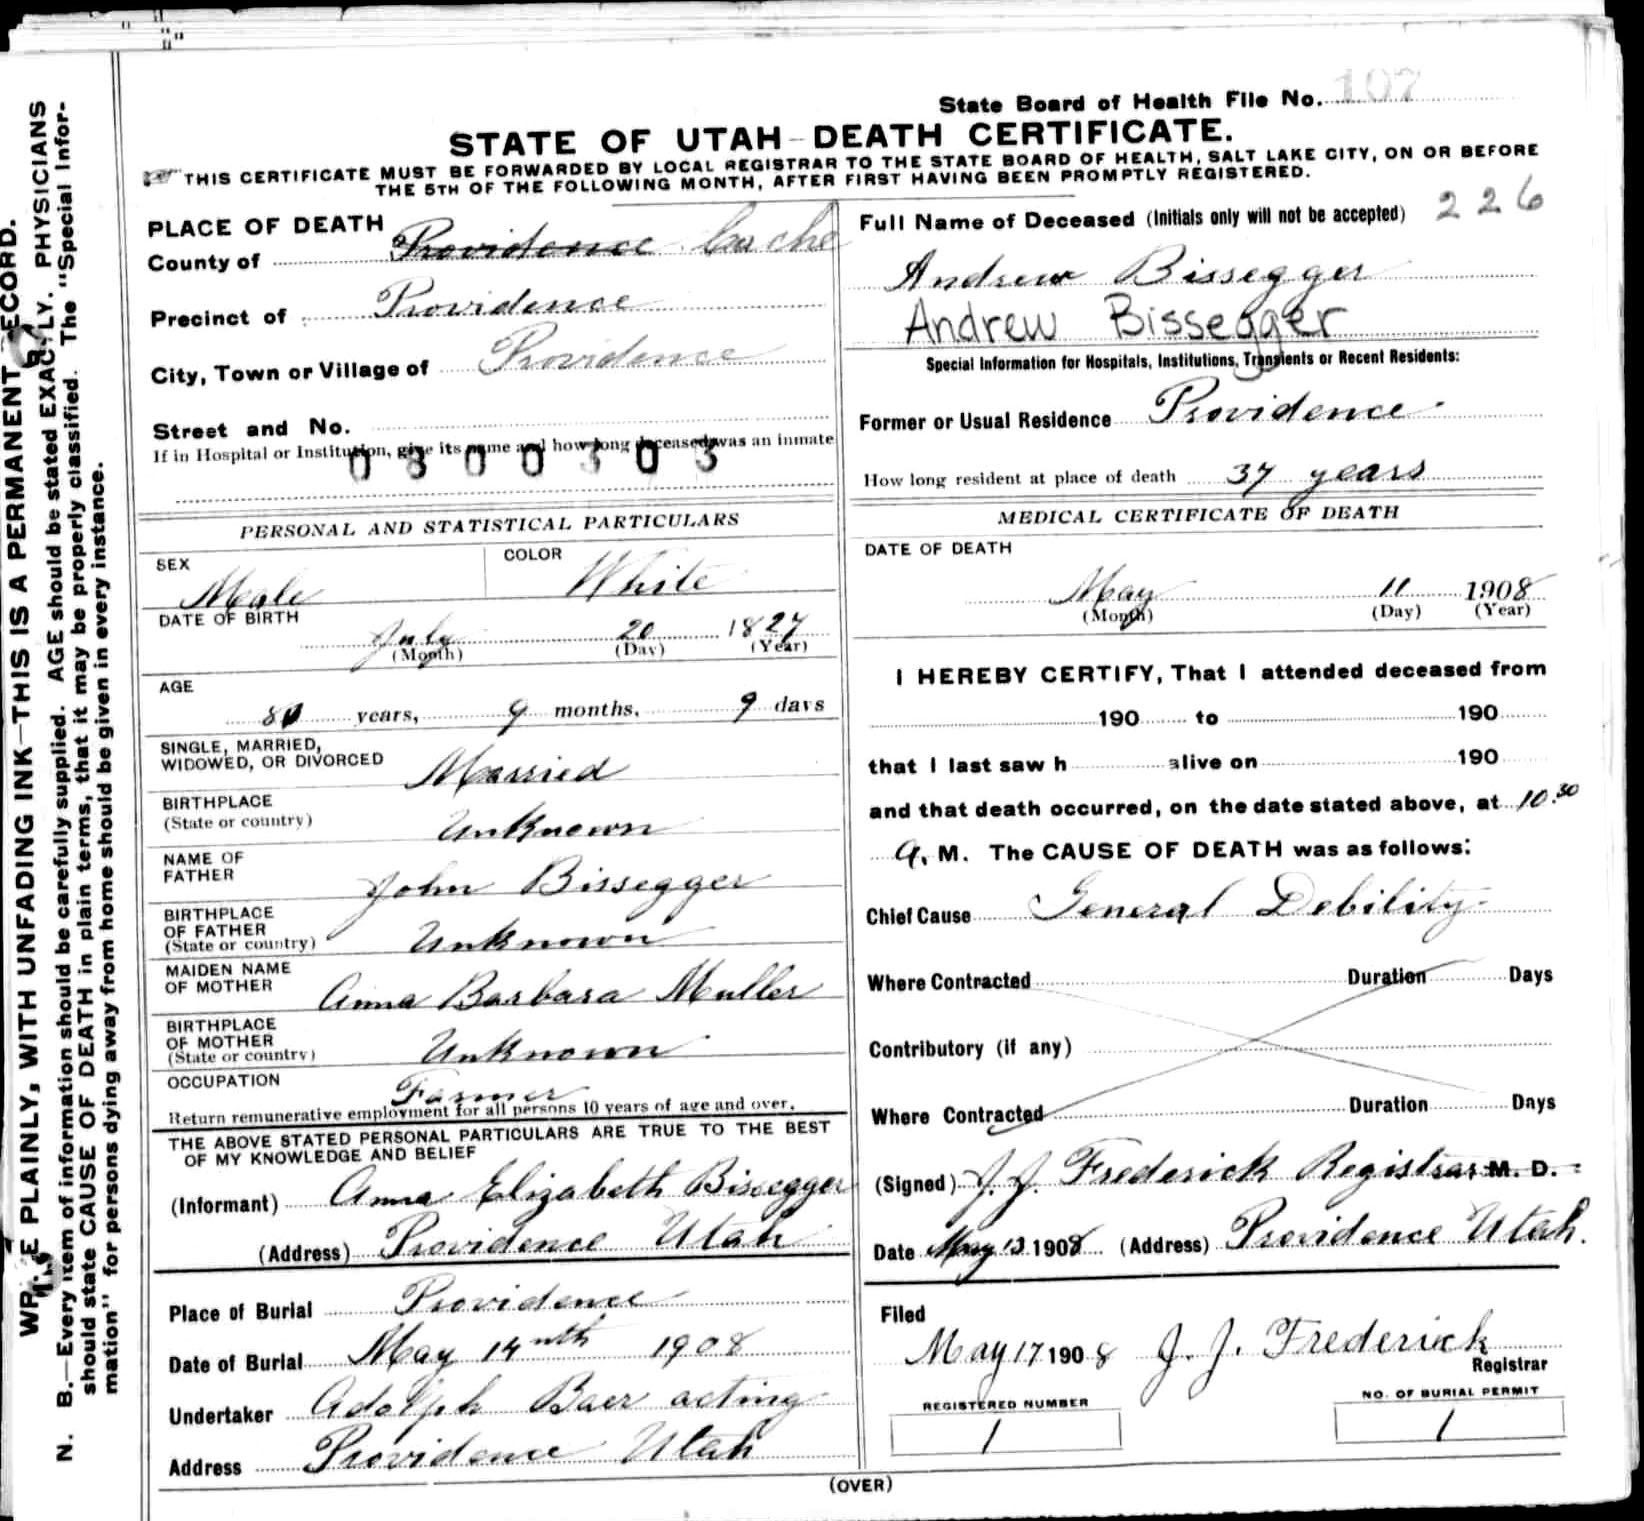 State Board of Health File No. 107
STATE OF UTAH-DEATH CERTIFICATE.
THIS CERTIFICATE MUST BE FORWARDED BY LOCAL REGISTRAR TO THE STATE BOARD OF HEALTH, SALT LAKE CITY, ON OR BEFORE
THE 5TH OF THE FOLLOWING MONTH, AFTER FIRST HAVING BEEN PROMPTLY REGISTERED.
WRITE PLAINLY, WITH UNFADING INK—THIS IS A PERMANENT RECORD.
N. B.—Every item of information should be carefully supplied. AGE should be stated EXACTLY. PHYSICIANS
should state CAUSE OF DEATH in plain terms, that it may be properly classified. The "Special Infor-
mation" for persons dying away from home should be given in every instance.
PLACE OF DEATH
County of Providence Cache
Precinct of Providence
City, Town or Village of Providence
Street and No.
If in Hospital or Institution, give its name and how long deceased was an inmate
0300303
PERSONAL AND STATISTICAL PARTICULARS
SEX Male
COLOR White
DATE OF BIRTH
July 20 1827
(Month) (Day) (Year)
AGE
80 years, 9 months, 9 days
SINGLE, MARRIED,
WIDOWED, OR DIVORCED Married
BIRTHPLACE
(State or country) Unknown
NAME OF
FATHER John Bissegger
BIRTHPLACE
OF FATHER
(State or country) Unknown
MAIDEN NAME
OF MOTHER Anna Barbara Muller
BIRTHPLACE
OF MOTHER
(State or country) Unknown
OCCUPATION Farmer
Return remunerative employment for all persons 10 years of age and over.
THE ABOVE STATED PERSONAL PARTICULARS ARE TRUE TO THE BEST
OF MY KNOWLEDGE AND BELIEF
(Informant) Anna Elizabeth Bissegger
(Address) Providence Utah
Place of Burial Providence
Date of Burial May 14nth 1908
Undertaker Adolph Baer acting
Address Providence Utah
Full Name of Deceased (Initials only will not be accepted) 226
Andrew Bissegger
Andrew Bissegger
Special Information for Hospitals, Institutions, Transients or Recent Residents:
Former or Usual Residence Providence
How long resident at place of death 37 years
MEDICAL CERTIFICATE OF DEATH
DATE OF DEATH
May 11 1908
(Month) (Day) (Year)
I HEREBY CERTIFY, That I attended deceased from
190 to 190
that I last saw h alive on 190
and that death occurred, on the date stated above, at 10.30
A. M. The CAUSE OF DEATH was as follows:
Chief Cause General Debility
Where Contracted Duration Days
Contributory (if any)
Where Contracted Duration Days
(Signed) J. J. Frederick Registrar M. D.
Date May 13 1908 (Address) Providence Utah.
Filed
May 17 1908 J. J. Frederick
Registrar
REGISTERED NUMBER
1
NO. OF BURIAL PERMIT
1
(OVER)